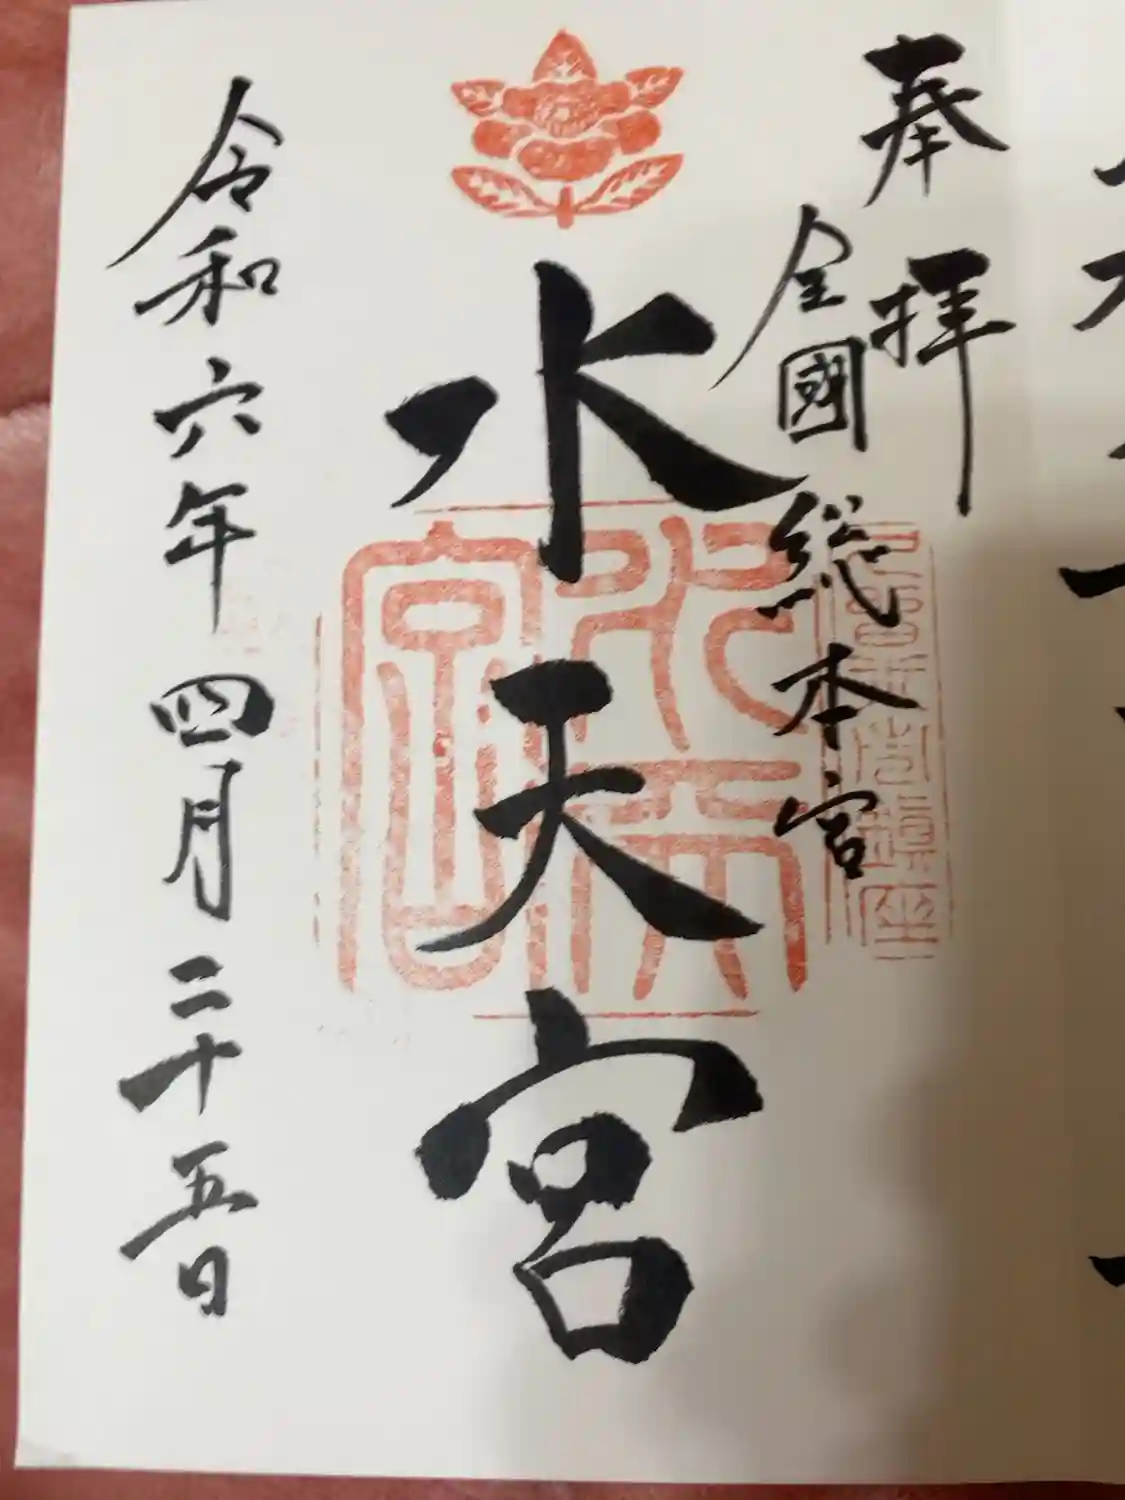 奉拝
全國総本宮
水天宮
令和六年四月二十五日
水天宮